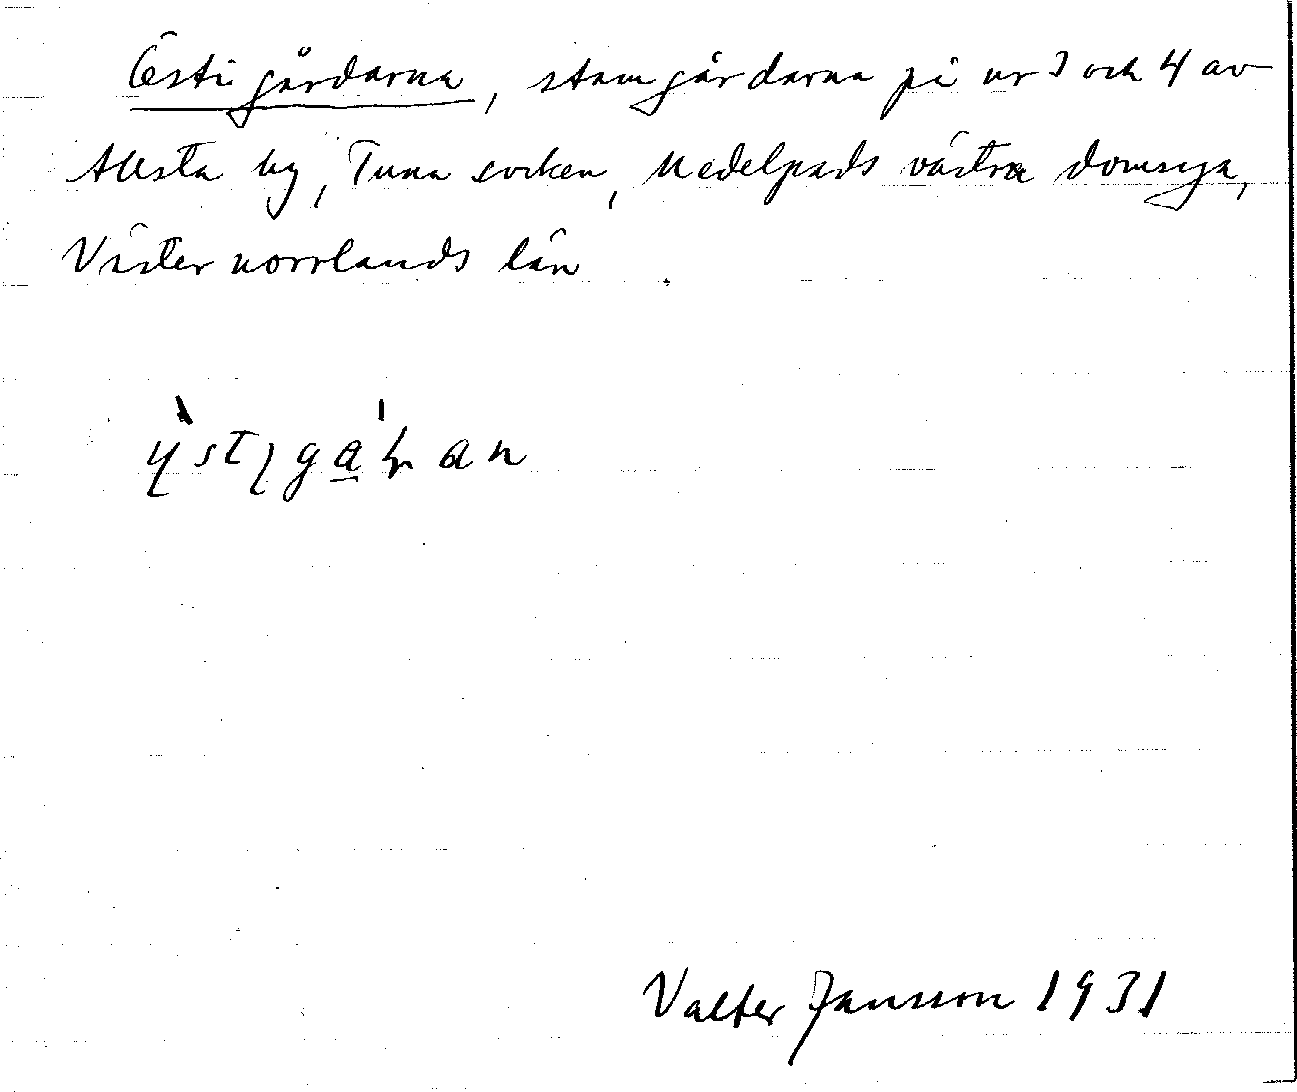 Östigårdarna, stamgårdarna på nr 3 och 4 av
Allsta by, Tuna socken, Medelpads västra domsaga,
Västernorrlands län
Valter Jansson 1931